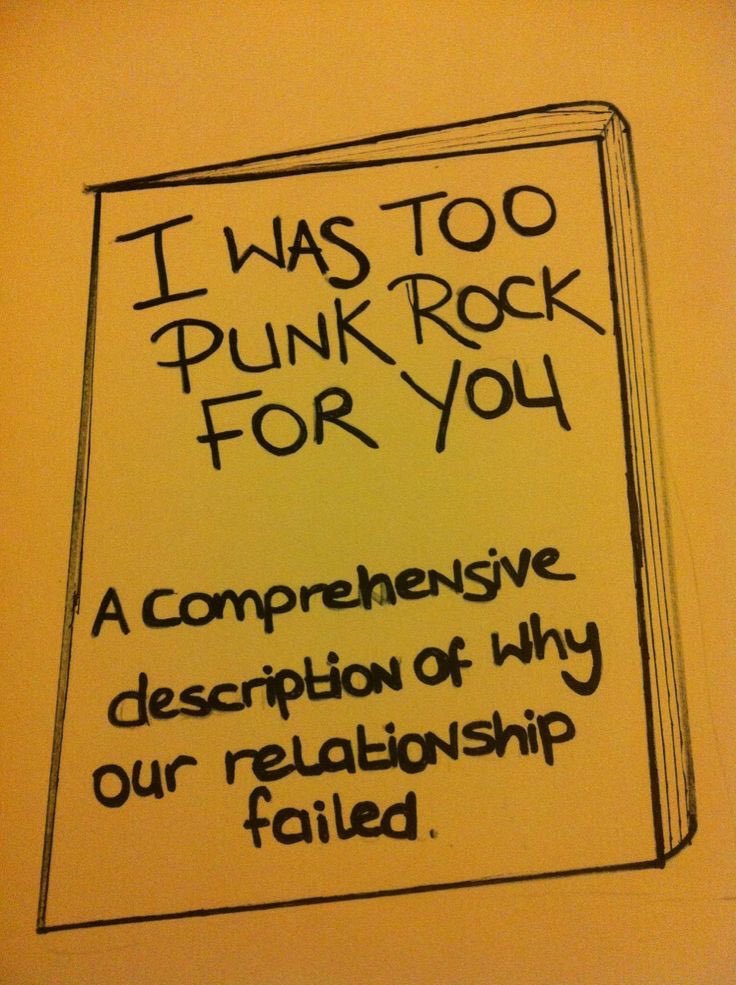 I WAS TOO
PUNK ROCK
FOR YOU
A comprehensive
description of why
our relationship
failed.